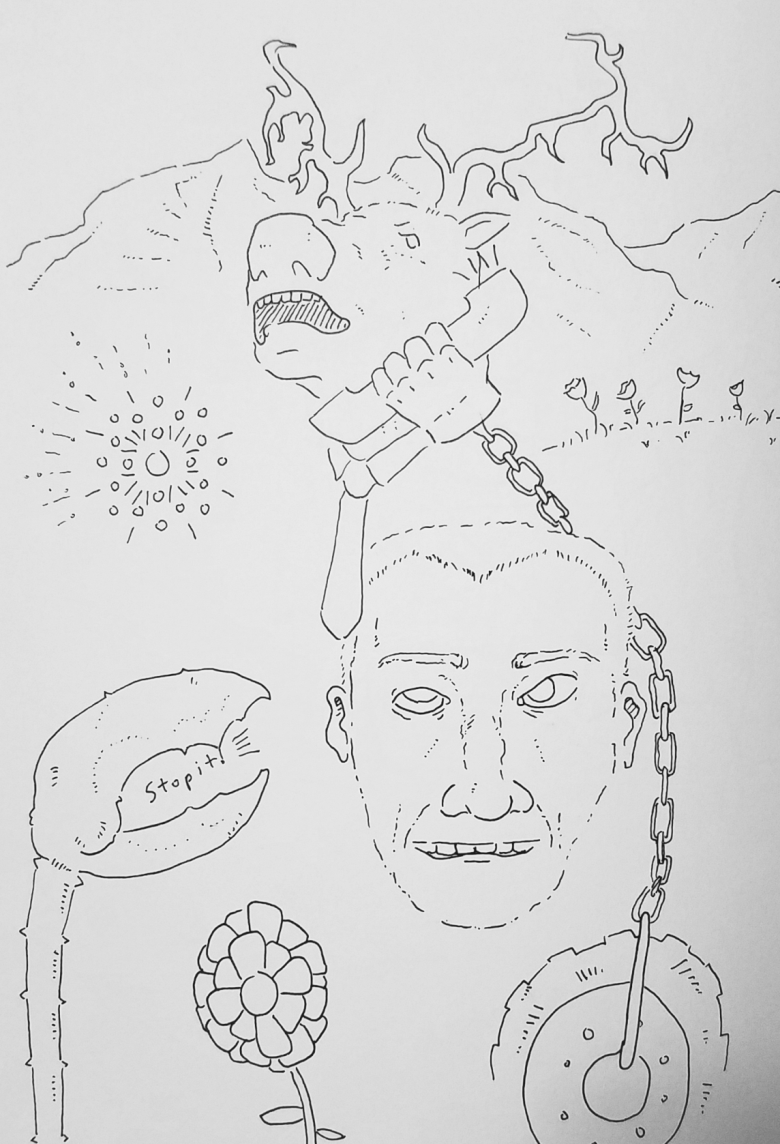 Stop it!